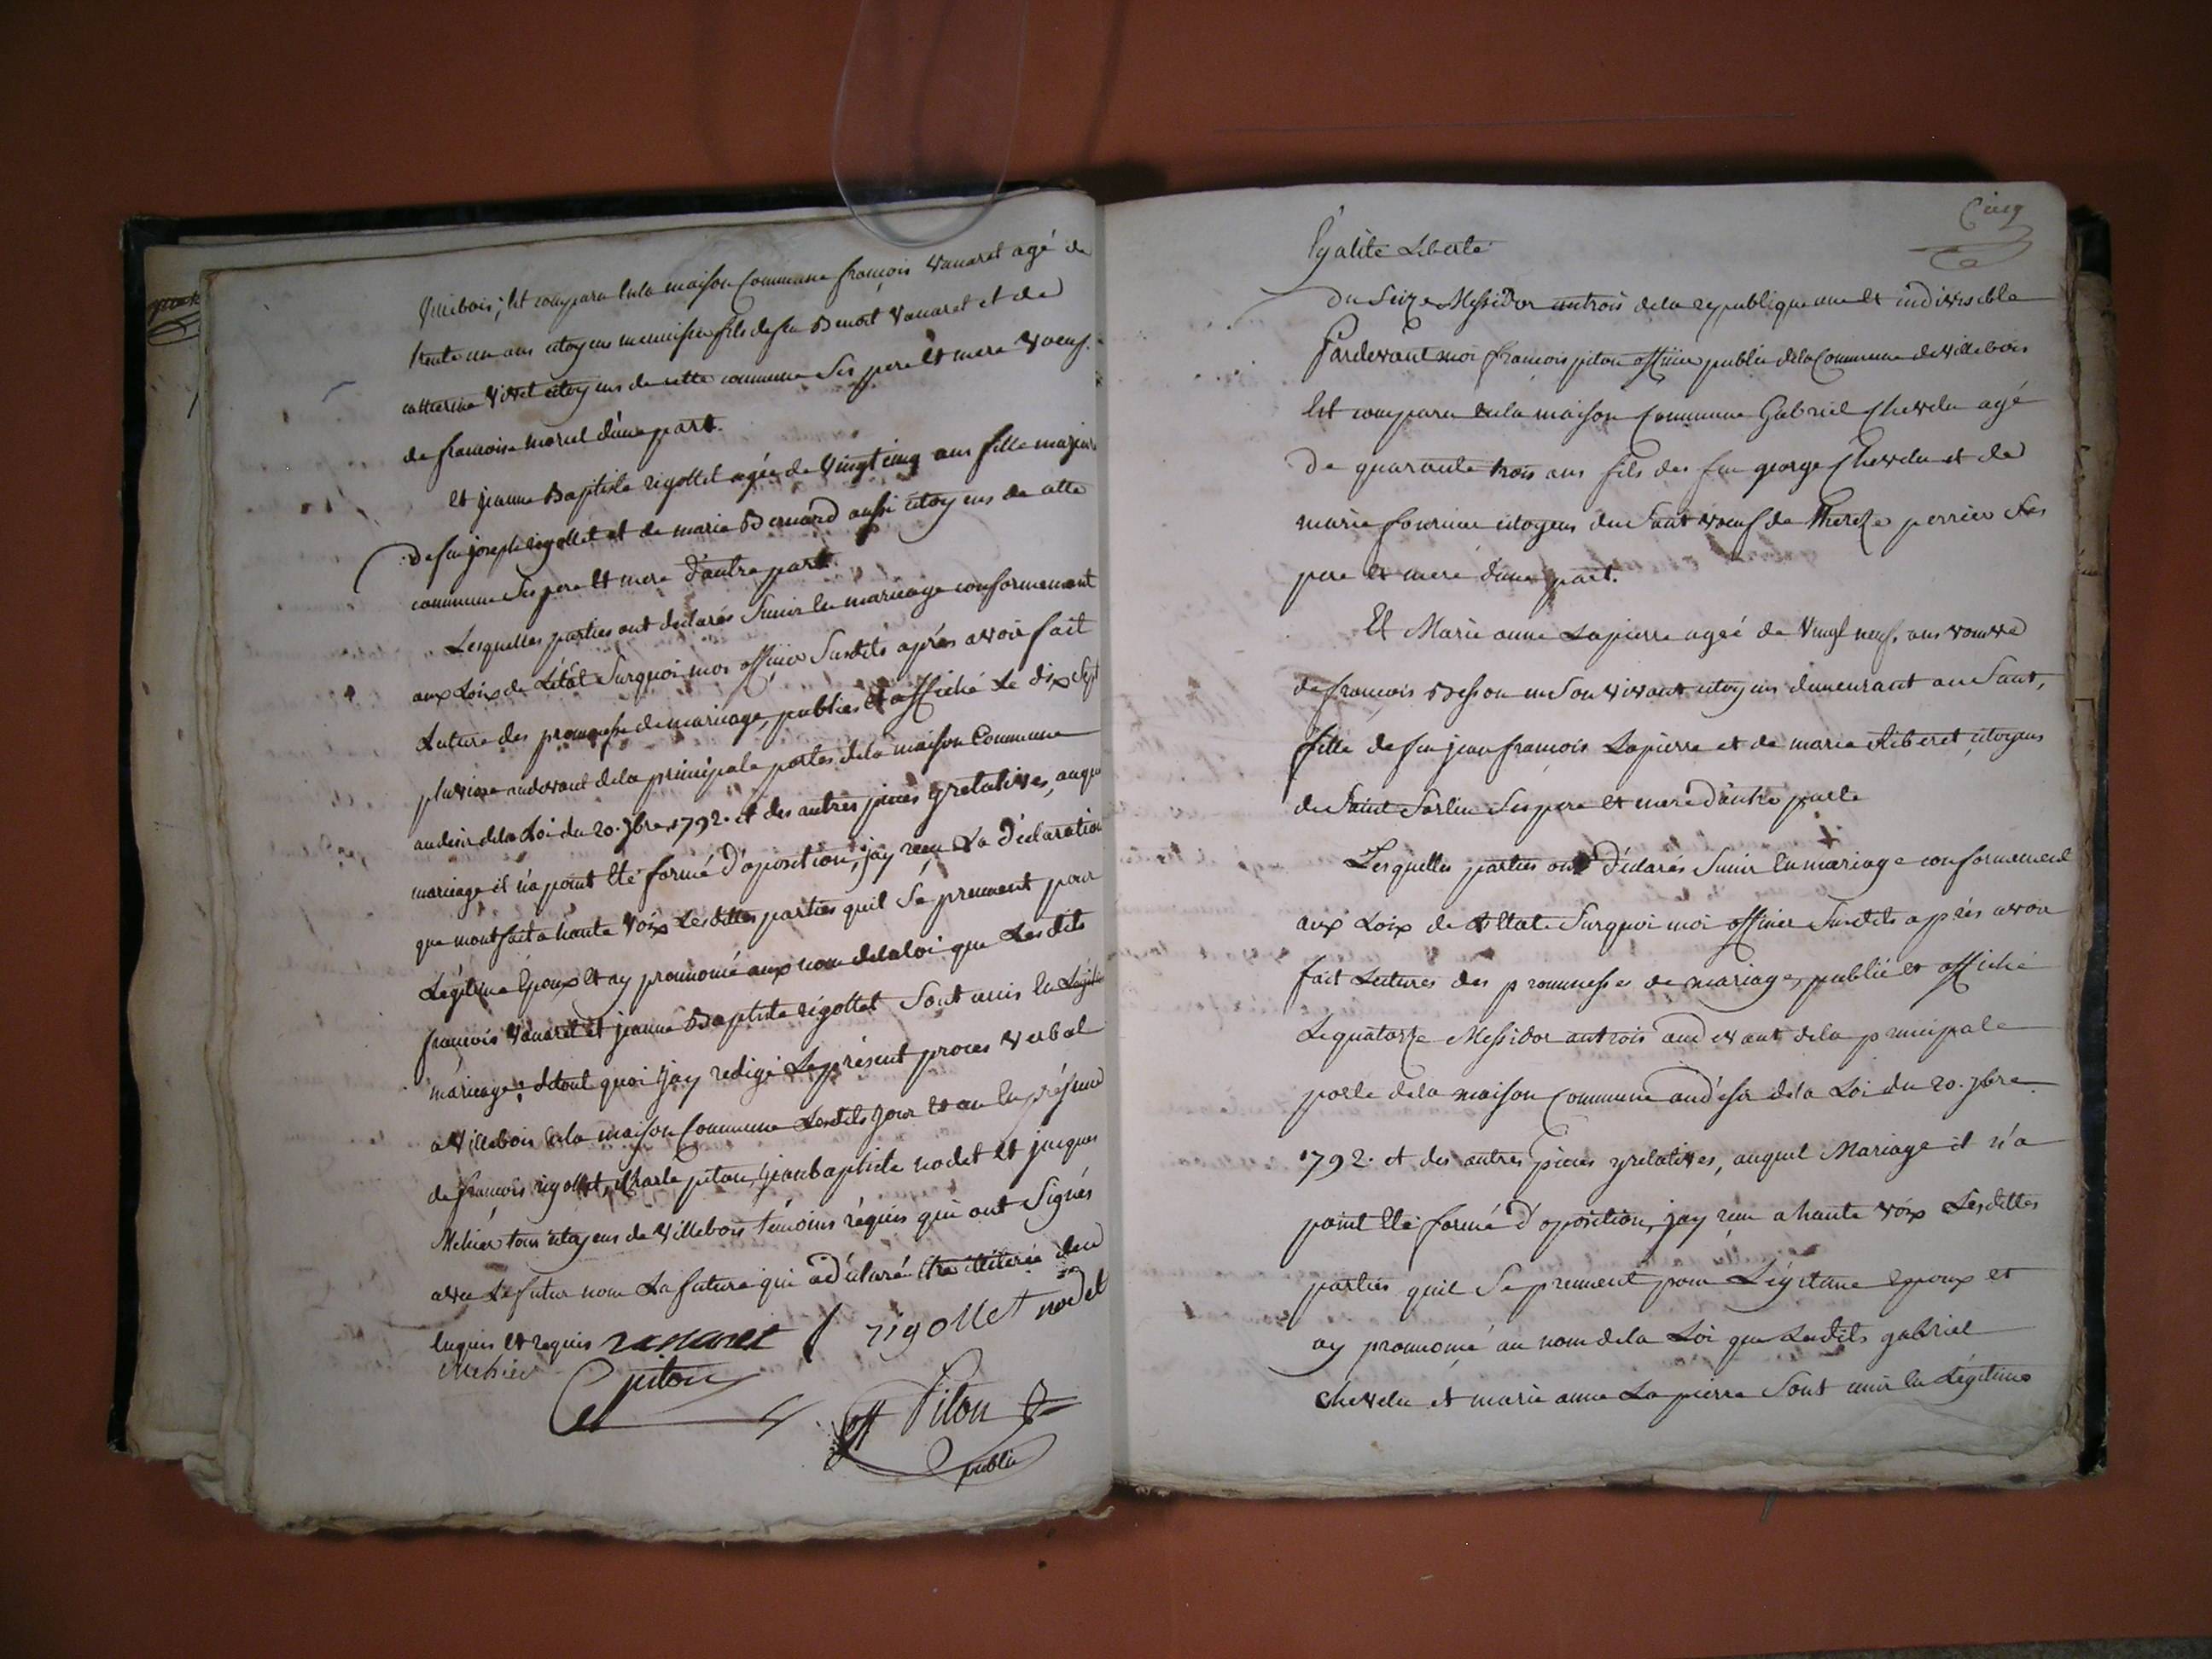 Villebois; Est comparu En la maison Commune françois Vanaret agé de
trente un ans citoyens menuisier fils de feu Benoit Vanaret et de
catherine Vivet citoyens de cette commune Ses pere Et mere Voeuf
de francoise morel d'une part.
Et jeanne Baptiste rigollet agée de Vingt cinq ans fille majeure
de feu joseph rigollet et de marie Bernard aussi citoyens de cette
commune Ses pere Et mere d'autre part.
Lesquelles parties ont declarés S'unir En mariage conformement
aux Loix de L'état Surquoi moi officier Susdits après avoir fait
Luture des promesse de mariage, publiés Et affiché Le dix Sept
pluviose audevant de la principale portes de la maison Commune
audesir de la Loi du 20. 7bre 1792. et des autres pieces y relatives, auquel
mariage il n'a point Eté formé d'oposition, jay reçu La déclaration
que mont fait a haute Voix Lesdittes parties quil Se prennent pour
Légitime Epoux Et ay prononcé aux nom de la loi que Lesdits
françois Vanaret et jeanne Baptiste rigollet Sont unis En Légitime
mariage; de tout quoi jay redigé Le présent proces Verbal
a Villebois En la maison Commune Lesdits jour Et an En présence
de françois rigollet, Charle piton, jean baptiste nodet Et jacques
Mehier tous citoyens de Villebois témoins réquis qui ont Signés
avec Le futur non La future qui a déclaré être illiterée de ce
Enquis Et requis vanaret f rigollet nodet
Mehier
C piton
Piton off
public
Cinq
Egalité Liberté
Du Seize Messidor an trois de la republique une Et indivisible
Pardevant moi françois piton officier public de la Commune de Villebois
Est comparu En la maison Commune Gabriel Chevelu agé
De quarante trois ans fils des feu george Chevelu et de
marie fournier citoyens du Saut voeuf de Thereze perrier Ses
pere Et mere d'une part.
Et Marie anne Lapierre agée de Vingt neuf ans vouvve
de françois Besson en Son vivant citoyens demeurant au Saut,
fille de feu jean françois Lapierre et de marie Riberet citoyens
de Saint Sorlin Ses pere Et mere d'autre parte
Lesquelles parties ont déclarés S'unir En mariage conformement
aux Loix de L'Etat Surquoi moi officier Susdits après avoir
fait Lutures des prommesses de mariage, publié et affiché
Le quatorze Messidor an trois audevant de la principale
porte de la maison Commune au désir de la Loi du 20. 7bre
1792. et des autres pieces y relatives, auquel Mariage il n'a
point Eté formé d'oposition, jay reçu a haute voix Lesdittes
parties quil Se prennent pour Légitime Epoux et
ay prononcé au nom de la Loi que Lesdits gabriel
Chevelu et marie anne Lapierre Sont unis En Légitime